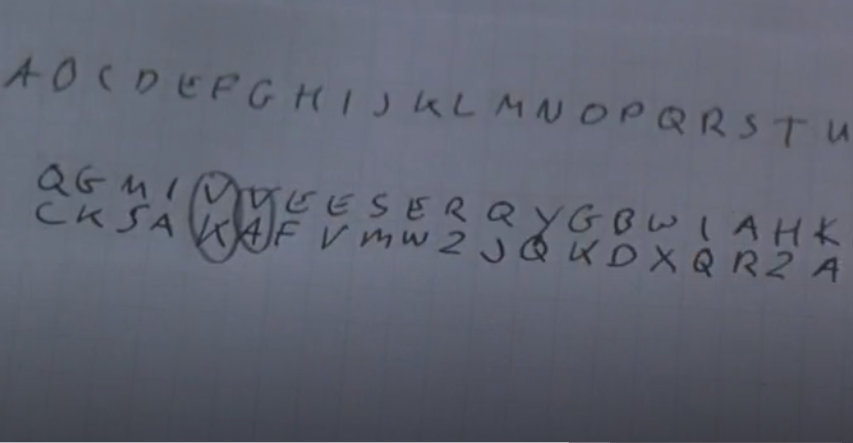 A B C D E F G H I J K L M N O P Q R S T U
Q G M I V V E E S E R Q Y G B W I A H K
C K S A K A F V M W Z J Q K D X Q R Z A